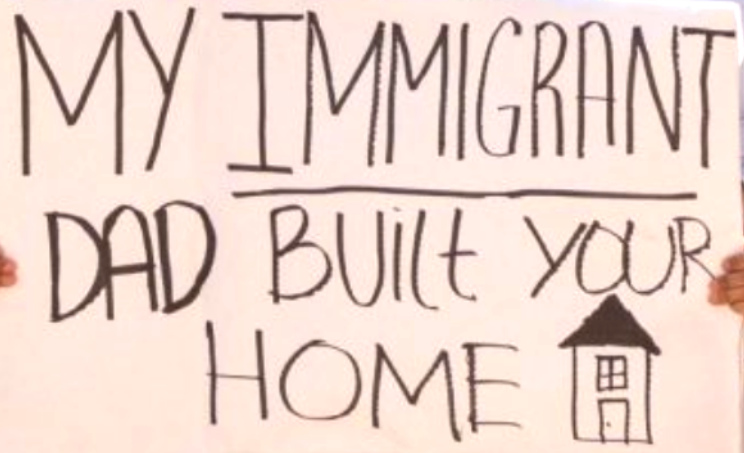 MY IMMIGRANT
DAD BUilt YOUR
HOME